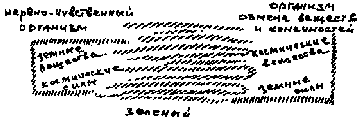 нервно-чувственный
организм
организм
обмена веществ
и конечностей
земные
вещества
космические
силы
космические
вещества
земные
силы
зеленый